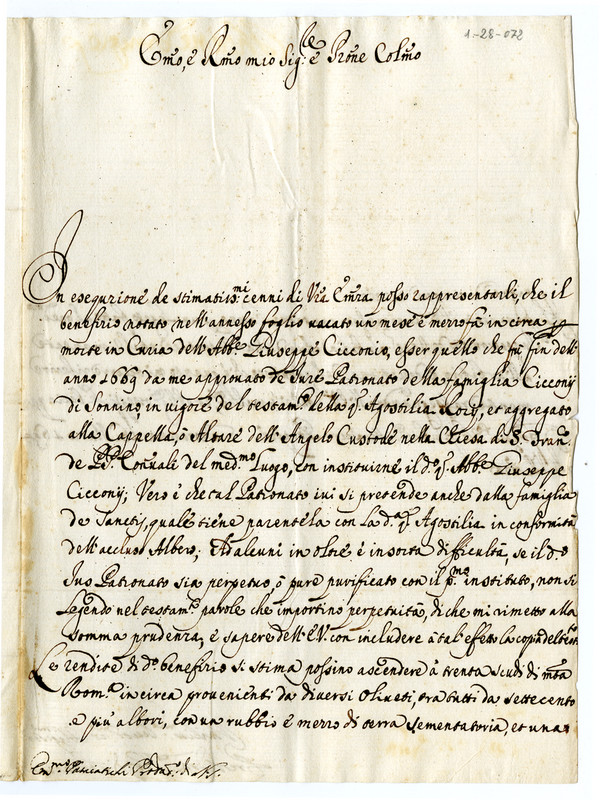 1-28-072
Emo, e Rmo mio Sig.re e Prone Colmo
In esequzione de stimatiss.mi cenni di Vra Emza posso rappresentarli, che il
benefizio notato nell'annesso foglio vacato un mese e mezzo fà in circa
morte in Curia dell'Abb.e Giuseppe Cicconio, esser quello che fù fin dell'
anno 1669 da me approvato de Jure Patronato della famiglia Cicconij
di Sonnino, in vigore del testam.o della q. Agostilia Rocij, et aggregato
alla Cappella, ò Altare dell'Angelo Custode nella Chiesa di S. Fran.
de PP. Conuali del med.mo luogo, con instituirne il d.o q. Abb.e Giuseppe
Cicconij; Vero è che tal Patronato ivi si pretende anche dalla famiglia
de Sanctij, quale tiene parentela con la d.a q. Agostilia in conformità
dell'accluso Albero; Ad alcuni in oltre è insorta difficultà, se il d.o
Jus Patronato sia perpetuo, ò pure purificato con il p.mo instituto, non si
legendo nel testam.o parole che importino perpetuità, di che mi rimetto alla
somma prudenza, e sapere dell'E.V. con includere à tal effetto la copia del
Le rendite di d.o benefizio si stima possino ascendere à trenta scudi di mta
Rom.a in circa provenienti da diversi Oliveti, tra tutti da settecento
e più albori, con un rubbio e mezzo di terra sementatoria, et una